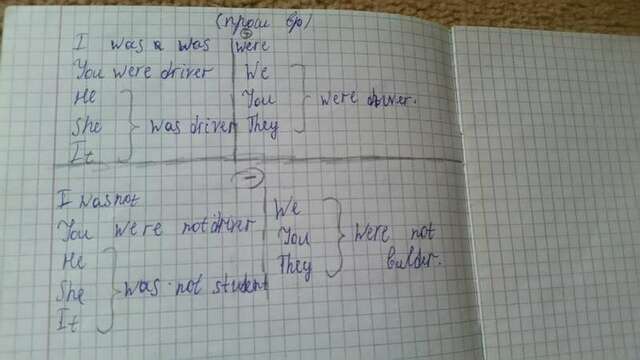 (прош вр)
+
I was a was were
You were driver We
He You were driver.
She was driver They
It
-
I was not We
You were not driver You were not
He They bulder.
She was not student
It